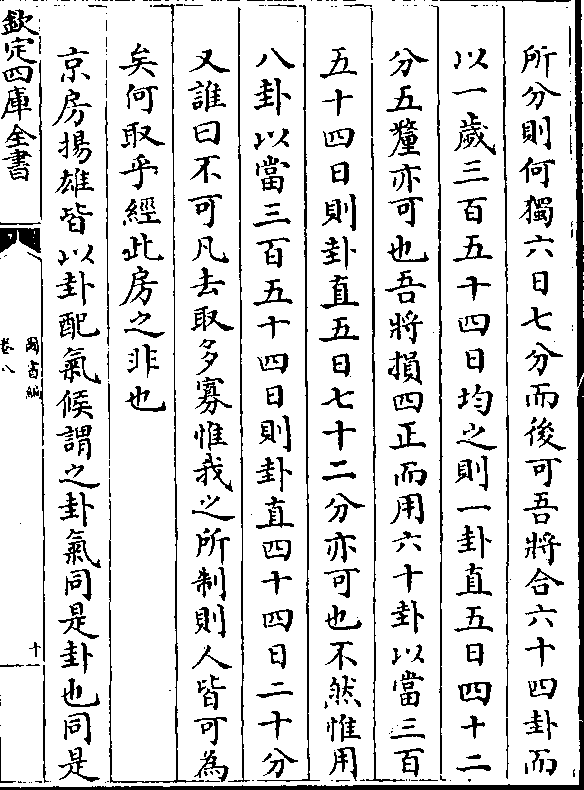 所分則何獨六日七分而後可吾將合六十四卦而
以一歲三百五十四日均之則一卦直五日四十二
分五釐亦可也吾將損四正而用六十卦以當三百
五十四日則卦直五日七十二分亦可也不然惟用
八卦以當三百五十四日則卦直四十四日二十分
又誰曰不可凡去取多寡惟我之所制則人皆可為
矣何取乎經此房之非也
京房揚雄皆以卦配氣候謂之卦氣同是卦也同是
欽定四庫全書
圖書編
卷八
十